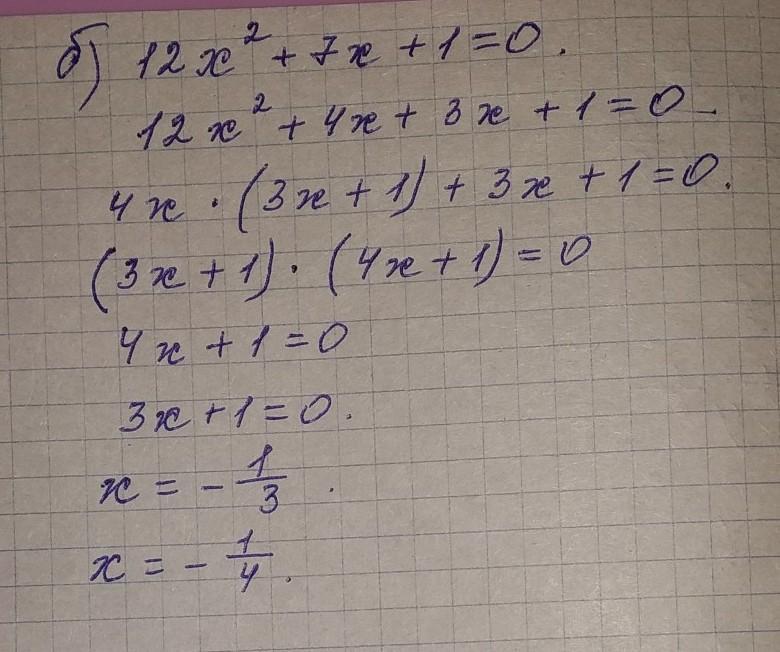 б) 12x² + 7x + 1 = 0.
12x² + 4x + 3x + 1 = 0.
4x · (3x + 1) + 3x + 1 = 0.
(3x + 1) · (4x + 1) = 0
4x + 1 = 0
3x + 1 = 0.
x = - 1/3 .
x = - 1/4 .